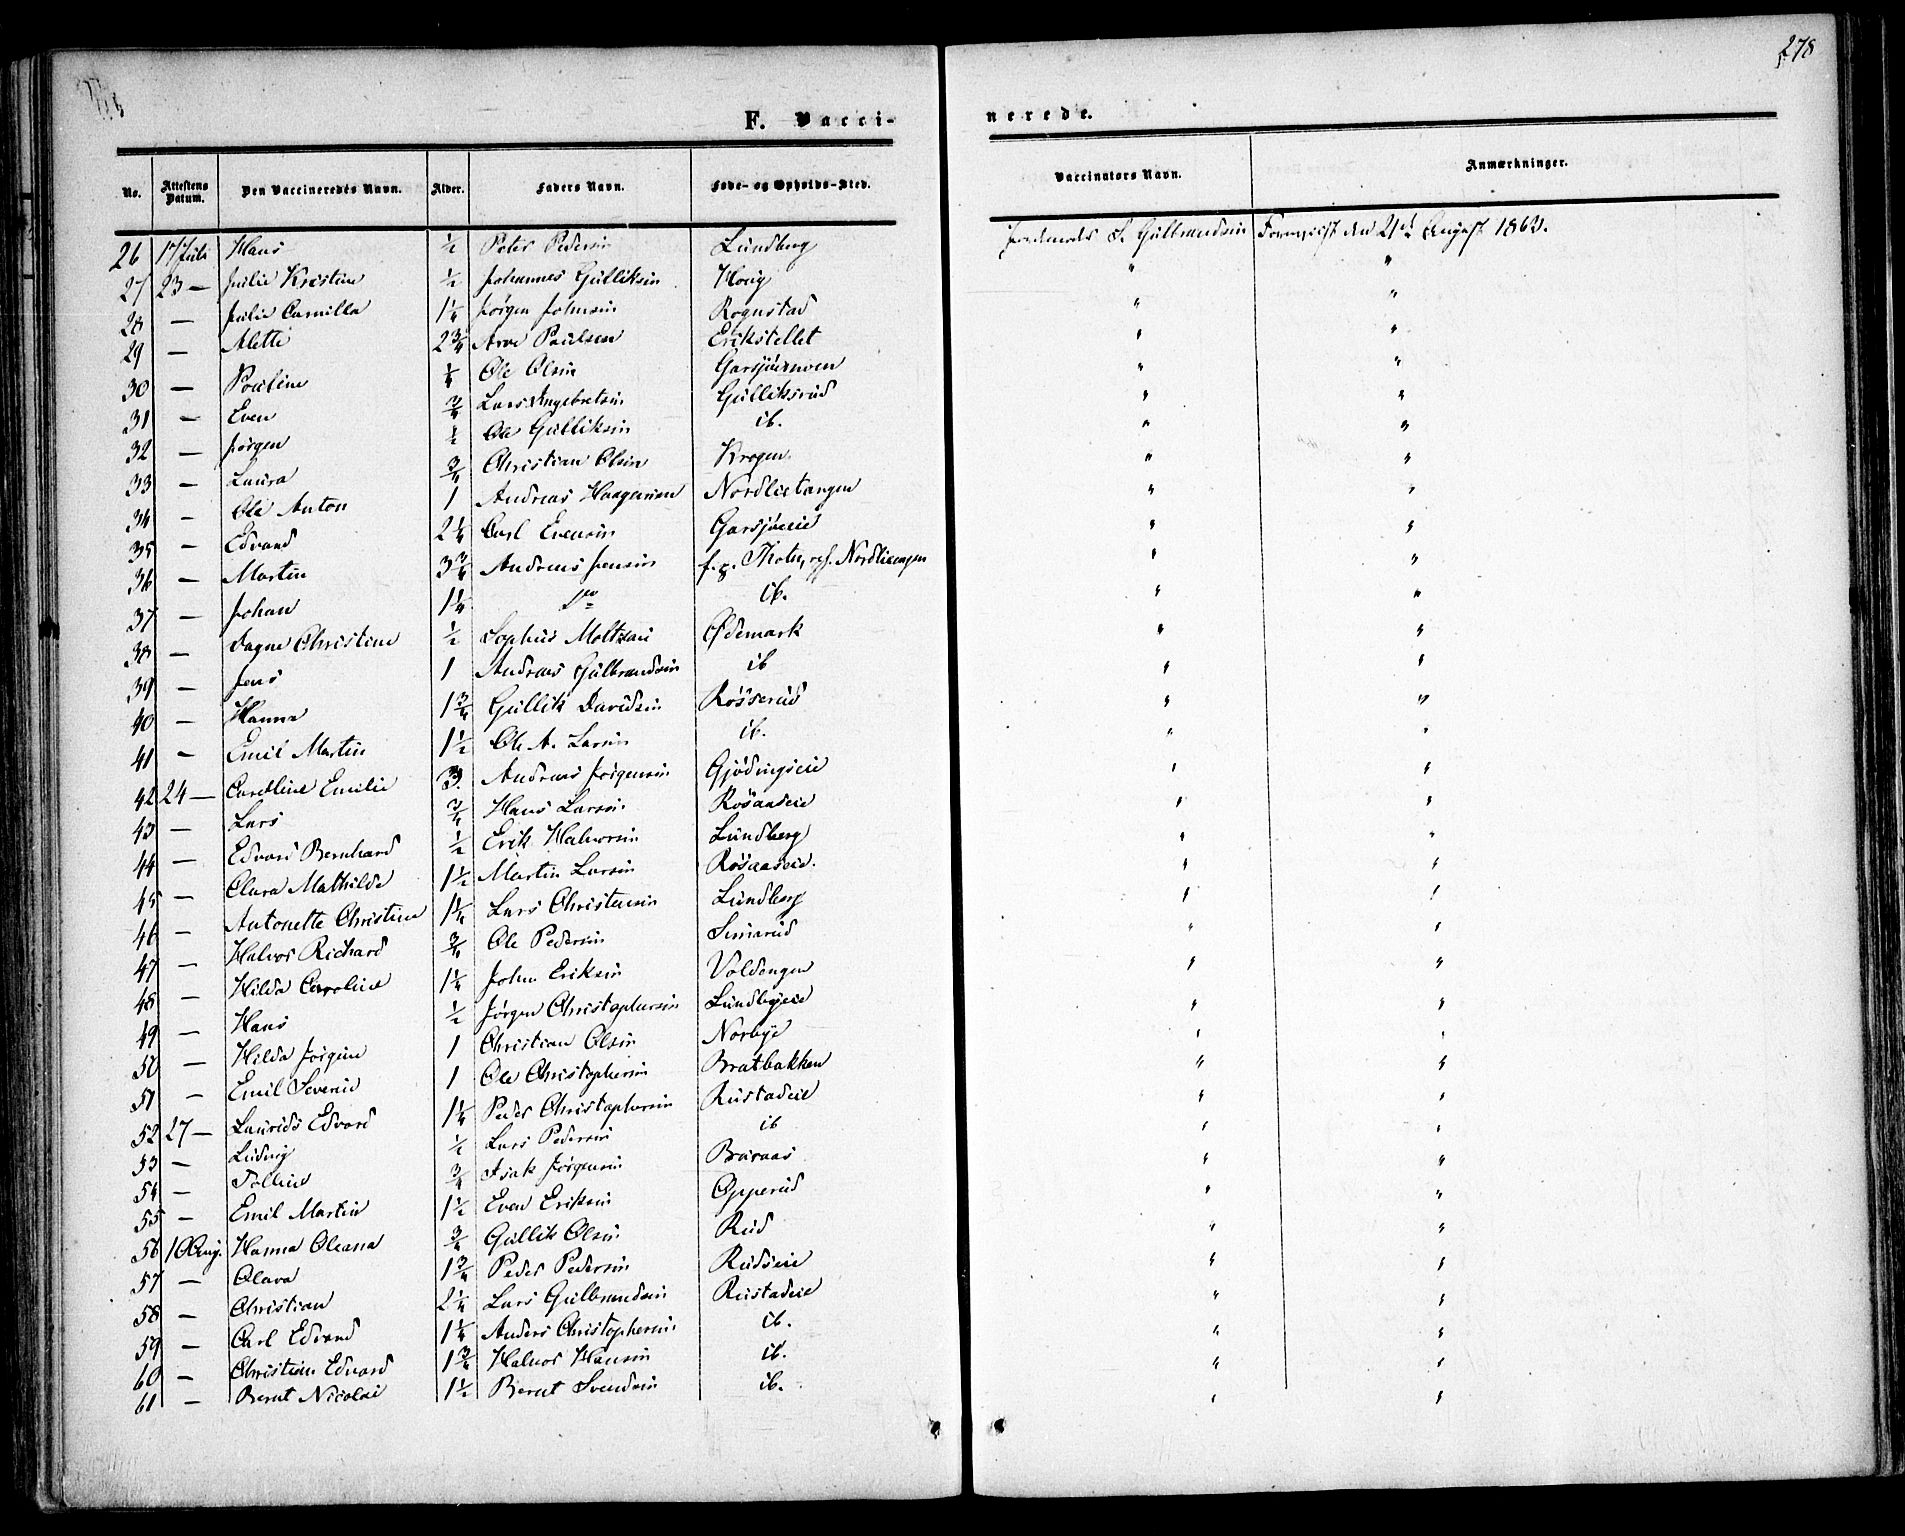 278
F. Vacci-
nerede.
No. Attestens Datum. Den Vaccineredes Navn. Alder. Faders Navn. Føde- og Opholds-Sted. Vaccinators Navn. Anmærkninger.
26 17 Juli Hans ½ Peter Pedersen Lundberg S. Gulbrandsen den 21de August 1863.
27 23 — Julie Kristine ½ Johannes Gulliksen Houg " "
28 — Julie Camilla 1¼ Jørgen Johnsen Rognstad " "
29 — Alette 2¾ Arve Paulsen Erikstellet " "
30 — Pauline ¼ Ole Olsen " "
31 — Even ¾ Lars Engebretsen Gulliksrud " "
32 — Jørgen ½ Ole Gulliksen ib. " "
33 — Laura ¾ Christian Olsen Krogen " "
34 — Ole Anton 1 Andreas Haagensen Nordlietangen " "
35 — Edvard 2¼ Carl Evensen Garsjøeie " "
36 — Martin 3¾ Andreas Jensen Nordlieengen " "
37 — Johan 1¼ do ib. " "
38 — Dagne Christine ½ Sophus Moltzau Ødemark " "
39 — Jens 1 Andreas Gulbrandsen ib " "
40 — Hanna 1¾ Gullik Davidsen Røsserud " "
41 — Emil Martin 1½ Ole A. Larsen ib. " "
42 24 — Caroline Emilie 3. Andreas Jørgensen Gjødingseie " "
43 — Lars ¾ Hans Larsen Rosaaseie " "
44 — Edvard Bernhard ½ Erik Halvorsen Lundberg " "
45 — Clara Mathilde 1½ Martin Larsen Rosaaseie. " "
46 — Antonette Christine 1¼ Lars Christensen Lundberg " "
47 — Halvor Richard ¾ Ole Pedersen " "
48 — Hilda Caroline 1¼ John Eriksen Voldengen " "
49 — Hans ½ Jørgen Christophersen Lundbyeie " "
50 — Hilda Jørgine 1 Christian Olsen Norbye " "
51 — Emil Severin 1 Ole Christophersen Bratbakken " "
52 27 — Laurids Edvard 1¼ Peder Christophersen Rustadeie " "
53 — Ludvig ½ Lars Pedersen ib " "
54 — Tolline ¾ Isak Jørgensen Braraas " "
55 — Emil Martin 1½ Even Eriksen Opperud " "
56 10 Aug. Hanna Oleana ¾ Gullik Olsen Rud " "
57 — Olava 1¾ Peder Pedersen Rudseie " "
58 — Christian 2¼ Lars Gulbrandsen Rustadeie " "
59 — Carl Edvard 1¼ Anders Christophersen ib. " "
60 — Christian Edvard 1¾ Halvor Hansen ib. " "
61 — Bernt Nicolai 1½ Bernt Svendsen ib. " "